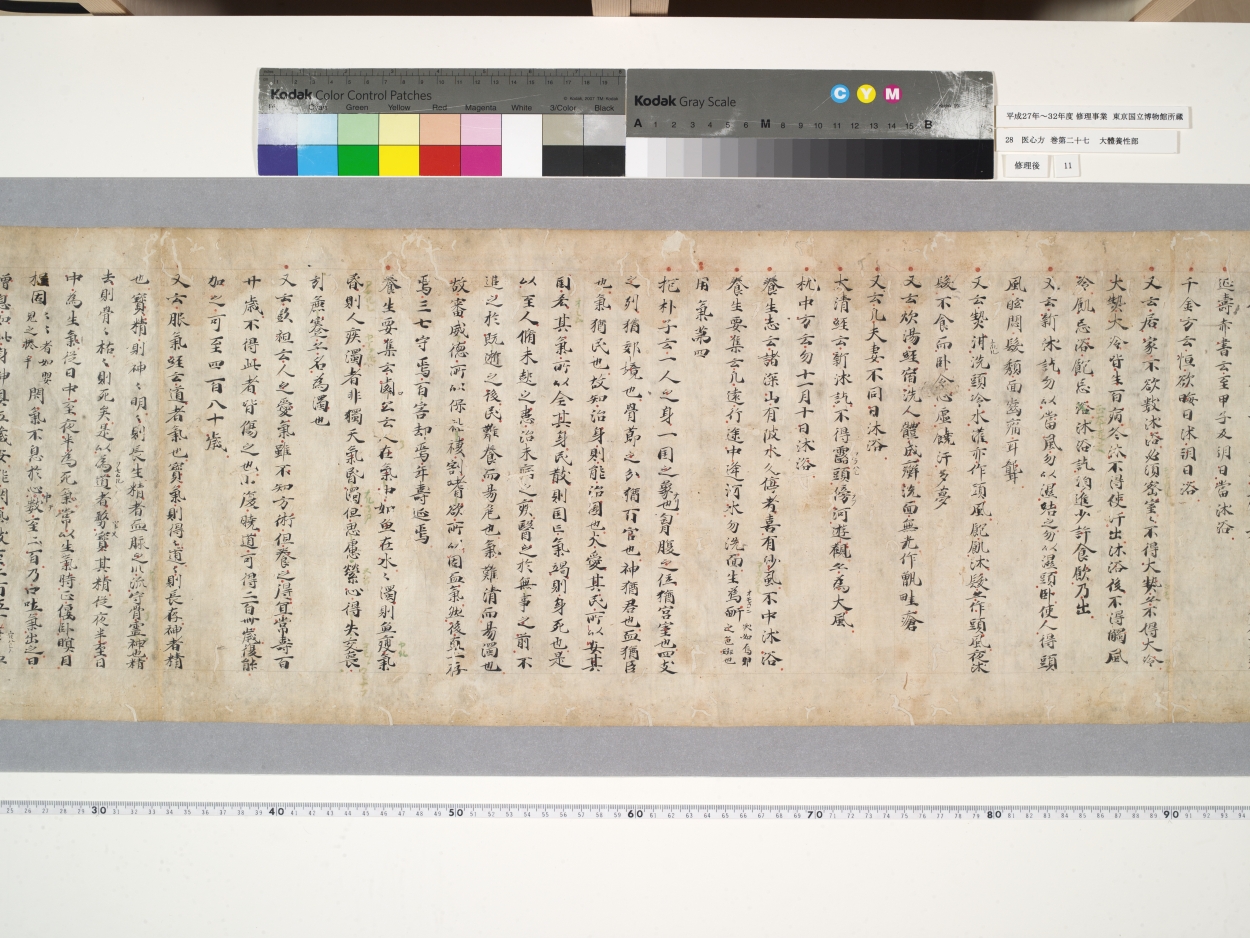 Kodak Color Control Patches
© Kodak, 2007 TM: Kodak
Cyan Green Yellow Red Magenta White 3/Color Black
Kodak Gray Scale
C Y M
A 1 2 3 4 5 6 M 8 9 10 11 12 13 14 15 B
平成27年～32年度 修理事業 東京国立博物館所蔵
28 医心方 巻第二十七 大體養性部
修理後 11
延壽赤書云至甲子及朔日當沐浴
千金方云恒欲晦日沐朔日浴
又云居家不欲數沐浴必須密室〻不得大熱亦不得大冷
大熱大冷皆生百病冬沐不得使汗出沐浴後不得觸風
冷飢忌浴飽忌沐沐浴訖須進少許食飲乃出
又云新沐訖勿以當風勿以濕結之勿以濕頭臥使人得頭
風眩悶髮頹面齒痛耳聾
又云熱泔洗頭冷水濯亦作頭風飲飢沐髮亦作頭風夜沐
髮不食而臥令心虛饒汗多夢
又云炊湯經宿洗人體成癬洗面無光作甑畦瘡
又云凡夫妻不同日沐浴
大清經云新沐訖不得露頭傍河遊觀冬為大風
枕中方云勿十一月十日沐浴
養生志云諸深山有陂水久停者喜有沙風不中沐浴
養生要集云凡遠行途中逢河水勿洗面生烏䵟
用氣第四
抱朴子云一人之身一国之象也胷腹之位猶宮室也四支
之列猶郊境也骨節之分猶百官也神猶君也血猶臣
也氣猶民也故知治身則能治國也夫愛其民所以安其
国養其氣所以全其身民散則国亡氣竭則身死也是
以至人消未起之患治未病之疾醫之於無事之前不
追之於既逝之後民難養而易危也氣難清而易濁也
故審威德所以保社稷割嗜欲所以固血氣然後真一存
焉三七守焉百害却焉年壽延焉
養生要集云
在氣中如魚在水〻濁則魚瘦氣
昏則人疾濁者非獨天氣昏濁但思慮縈心得失交喪
引無塞亦名為濁也
又云彭祖云人之愛氣雖不知方術但養之得宜常壽百
廿歲不得此者皆傷之也小復曉道可得二百卌歲復能
加之可至四百八十歲
又云服氣經云道者氣也寶氣則得〻道〻則長存神者精
也寶精則神〻明〻則長生精者血脈之川流守骨靈神也精
去則骨〻枯〻則死矣是以為道者務寶其精從夜半至日
中為生氣從日中至夜半為死氣常以生氣時正偃臥瞑目
握固〻〻者如嬰兒之拳手 閇氣不息於心數至二百乃口吐氣出之日
25 26 27 28 29 30 31 32 33 34 35 36 37 38 39 40 41 42 43 44 45 46 47 48 49 50 51 52 53 54 55 56 57 58 59 60 61 62 63 64 65 66 67 68 69 70 71 72 73 74 75 76 77 78 79 80 81 82 83 84 85 86 87 88 89 90 91 92 93 94